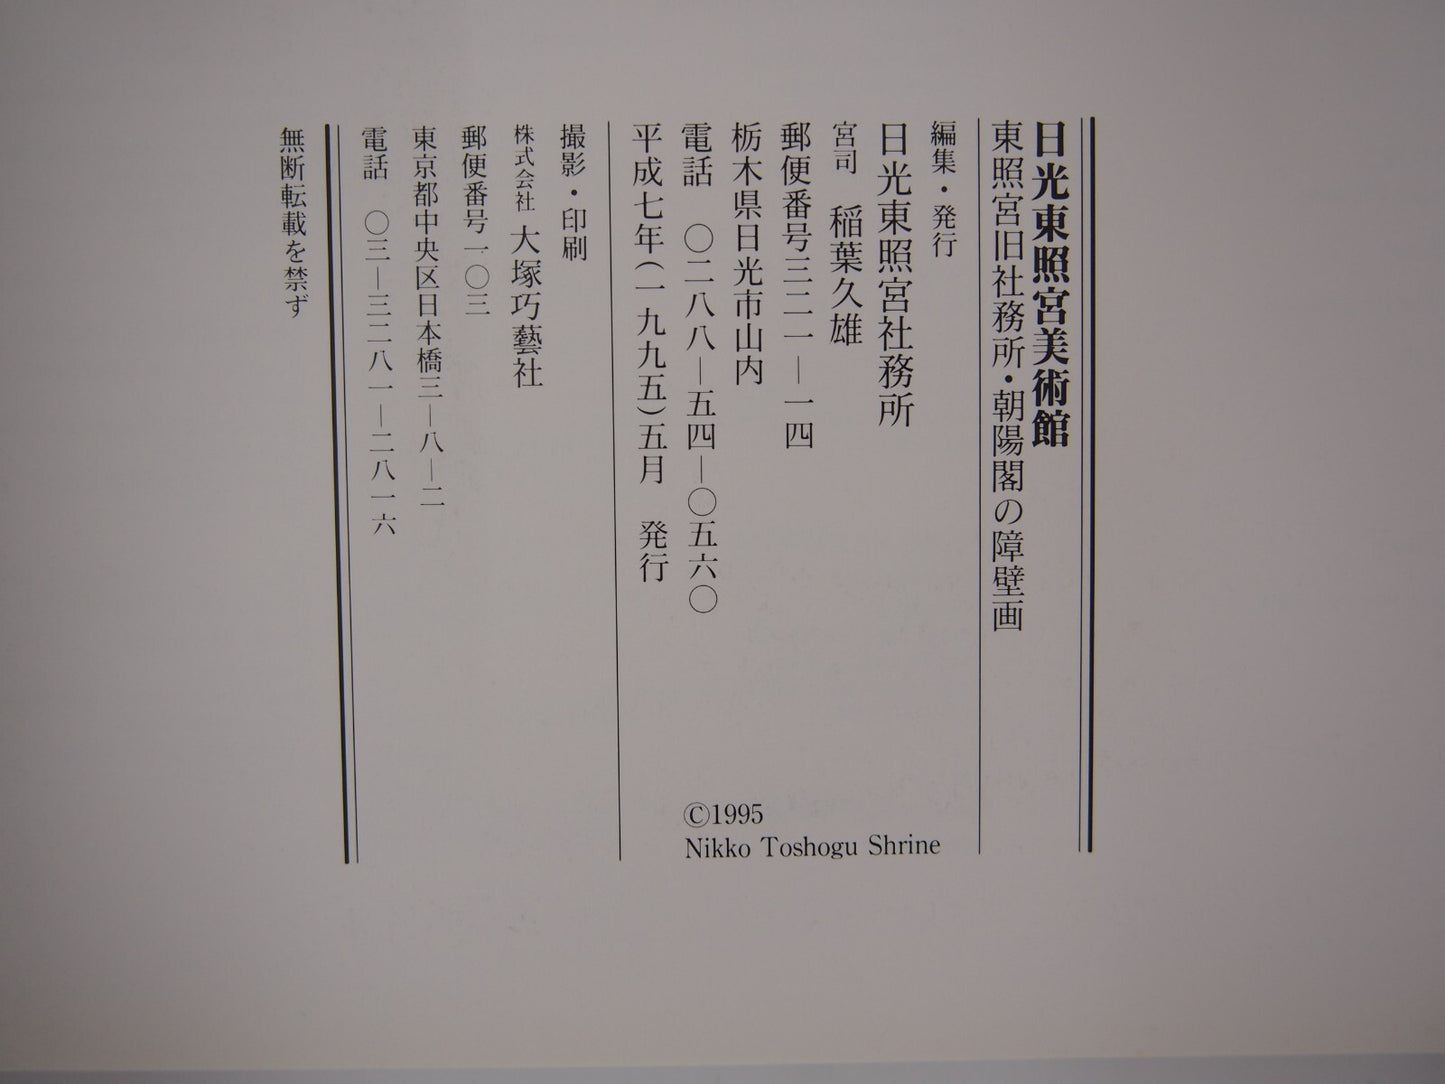 日光東照宮美術館
東照宮旧社務所・朝陽閣の障壁画
編集・発行
日光東照宮社務所
宮司 稲葉久雄
郵便番号三二一―一四
栃木県日光市山内
電話 〇二八八―五四―〇五六〇
平成七年(一九九五)五月 発行
©1995
Nikko Toshogu Shrine
撮影・印刷
株式会社 大塚巧藝社
郵便番号一〇三
東京都中央区日本橋三―八―二
電話 〇三―三二八一―二八一六
無断転載を禁ず